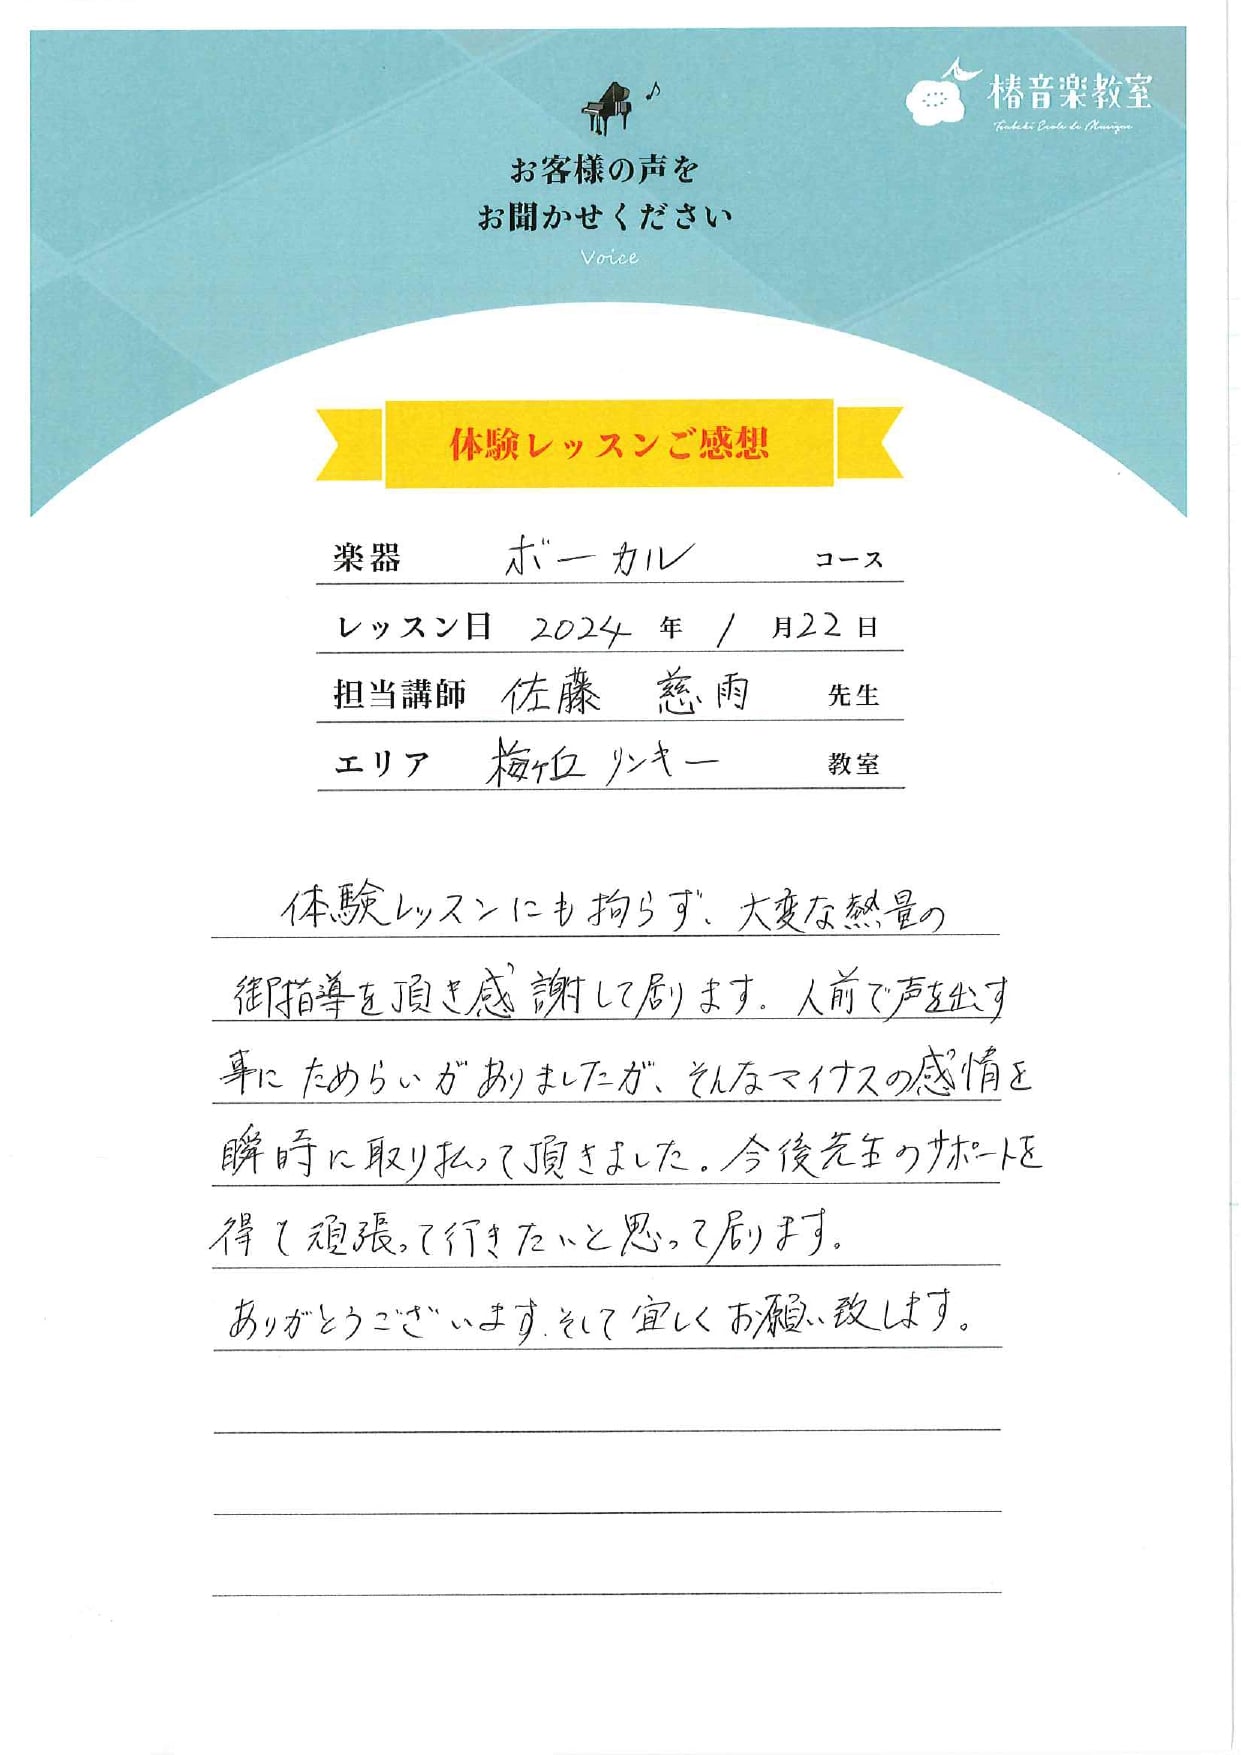 椿音楽教室
Tsubaki Ecole de Musique
お客様の声を
お聞かせください
Voice
体験レッスンご感想
楽器 ボーカル コース
レッスン日 2024 年 1 月 22 日
担当講師 佐藤 慈雨 先生
エリア 梅ヶ丘 リンキー 教室
体験レッスンにも拘らず、大変な熱量の
御指導を頂き感謝して居ります。人前で声を出す
事にためらいがありましたが、そんなマイナスの感情を
瞬時に取り払って頂きました。今後先生のサポートを
得て頑張って行きたいと思って居ります。
ありがとうございます.そして宜しくお願い致します。